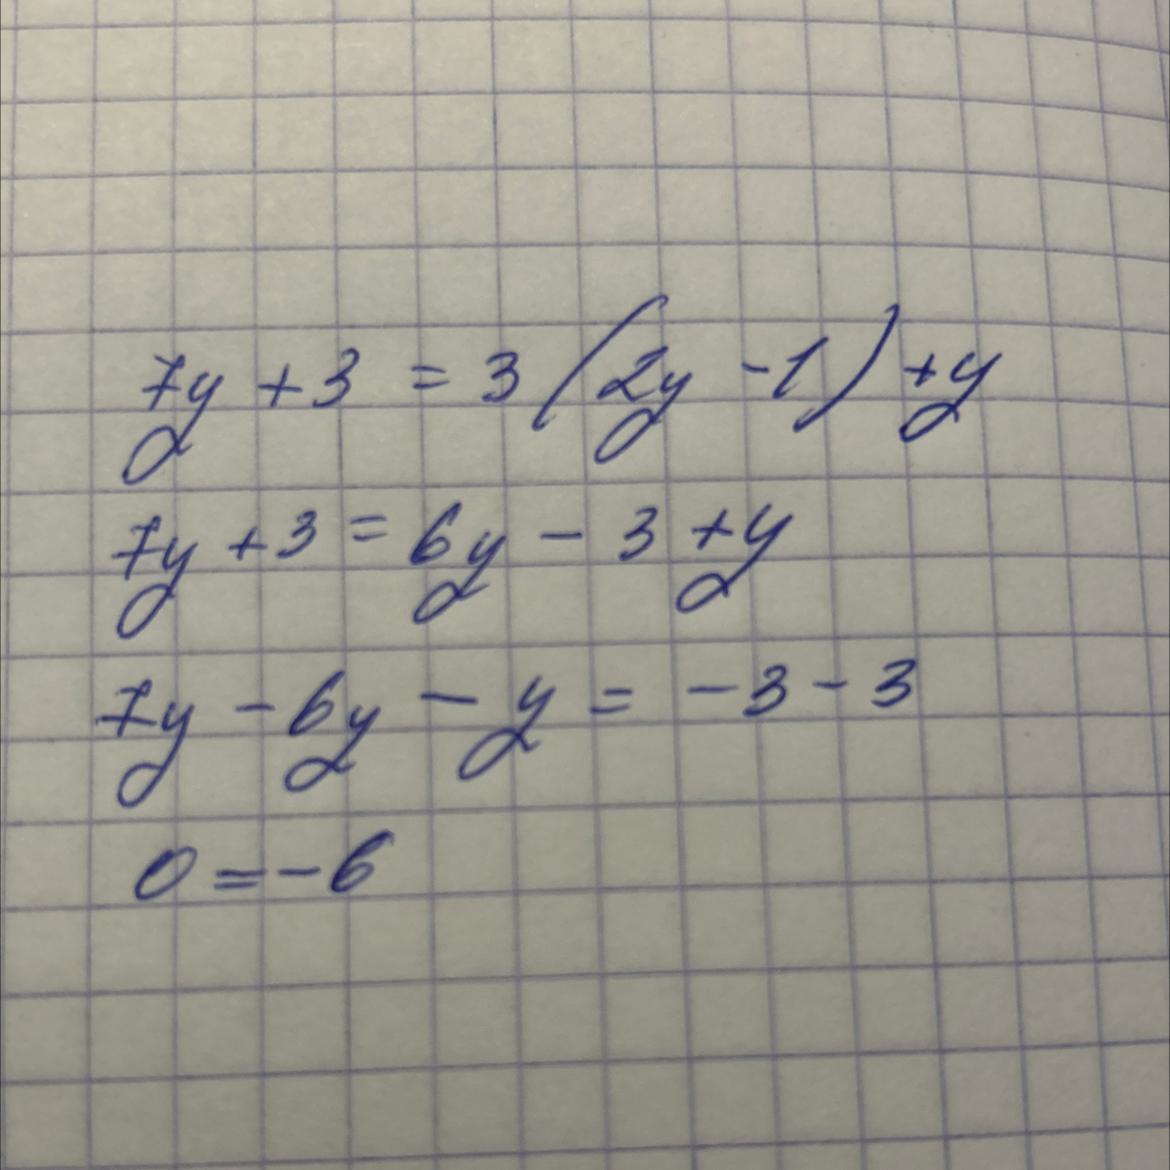 7y + 3 = 3 (2y - 1) + y
7y + 3 = 6y - 3 + y
7y - 6y - y = - 3 - 3
0 = - 6